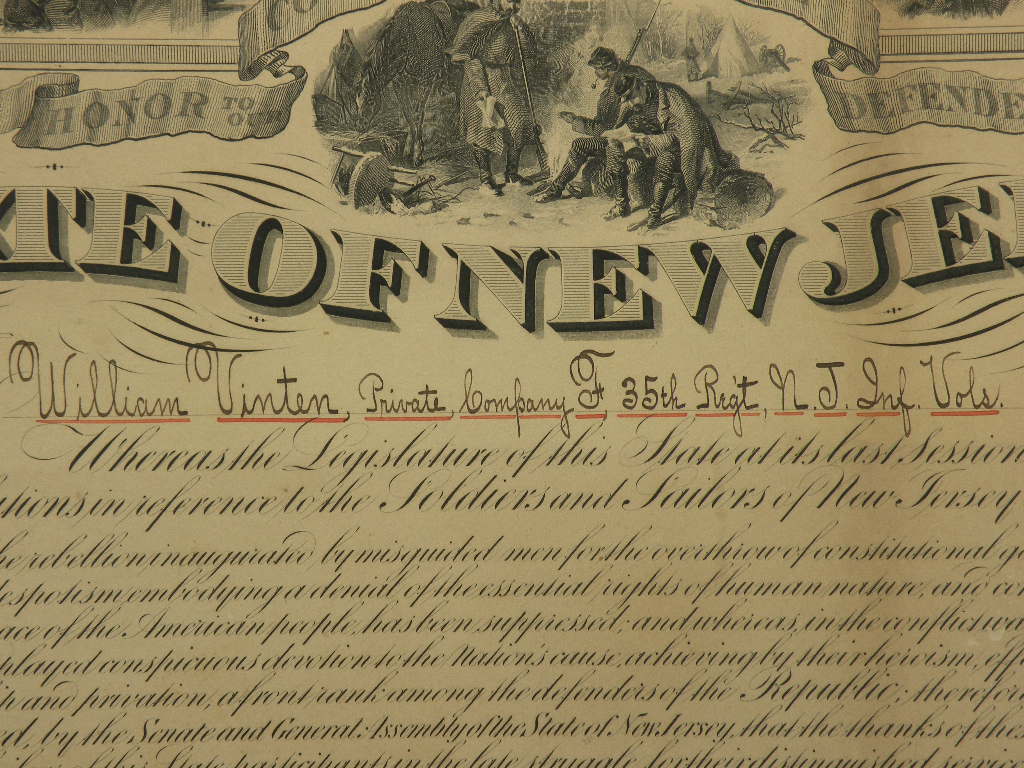 HONOR TO OUR
DEFENDE
TE OF NEW JE
William Vinten, Private, Company F, 35th Regt, N. J. Inf. Vols.
Whereas the Legislature of this State at its last Session
utions in reference to the Soldiers and Sailors of New Jersey
he rebellion inaugurated by misguided men for the overthrow of constitutional go
espotism, embodying a denial of the essential rights of human nature, and con
ace of the American people, has been suppressed; and whereas, in the conflict wa
played conspicuous devotion to the Nation's cause, achieving by their heroism, eff
and privation, a front rank among the defenders of the Republic; therefore
d, by the Senate and General Assembly of the State of New Jersey, that the thanks of the
this State participants in the late struggle for their distinguished service